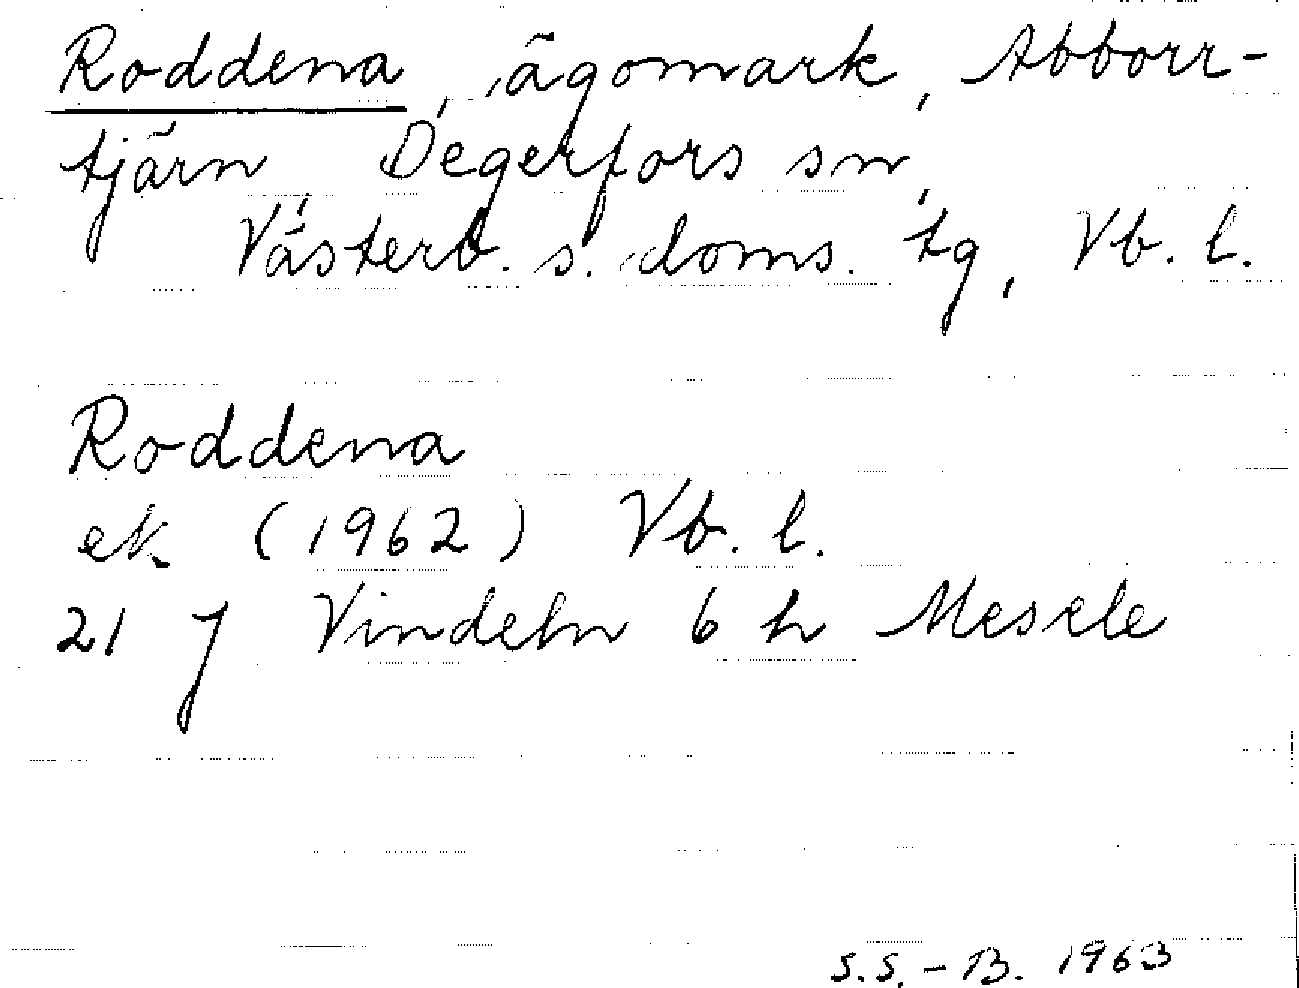 Roddena, ägomark, Abborr-
tjärn, Degerfors sn,
Västerb. s. doms. tg, Vb. l.
Roddena
ek (1962) Vb. l.
21 J Vindeln 6 h Mesele
S.S.-B. 1963